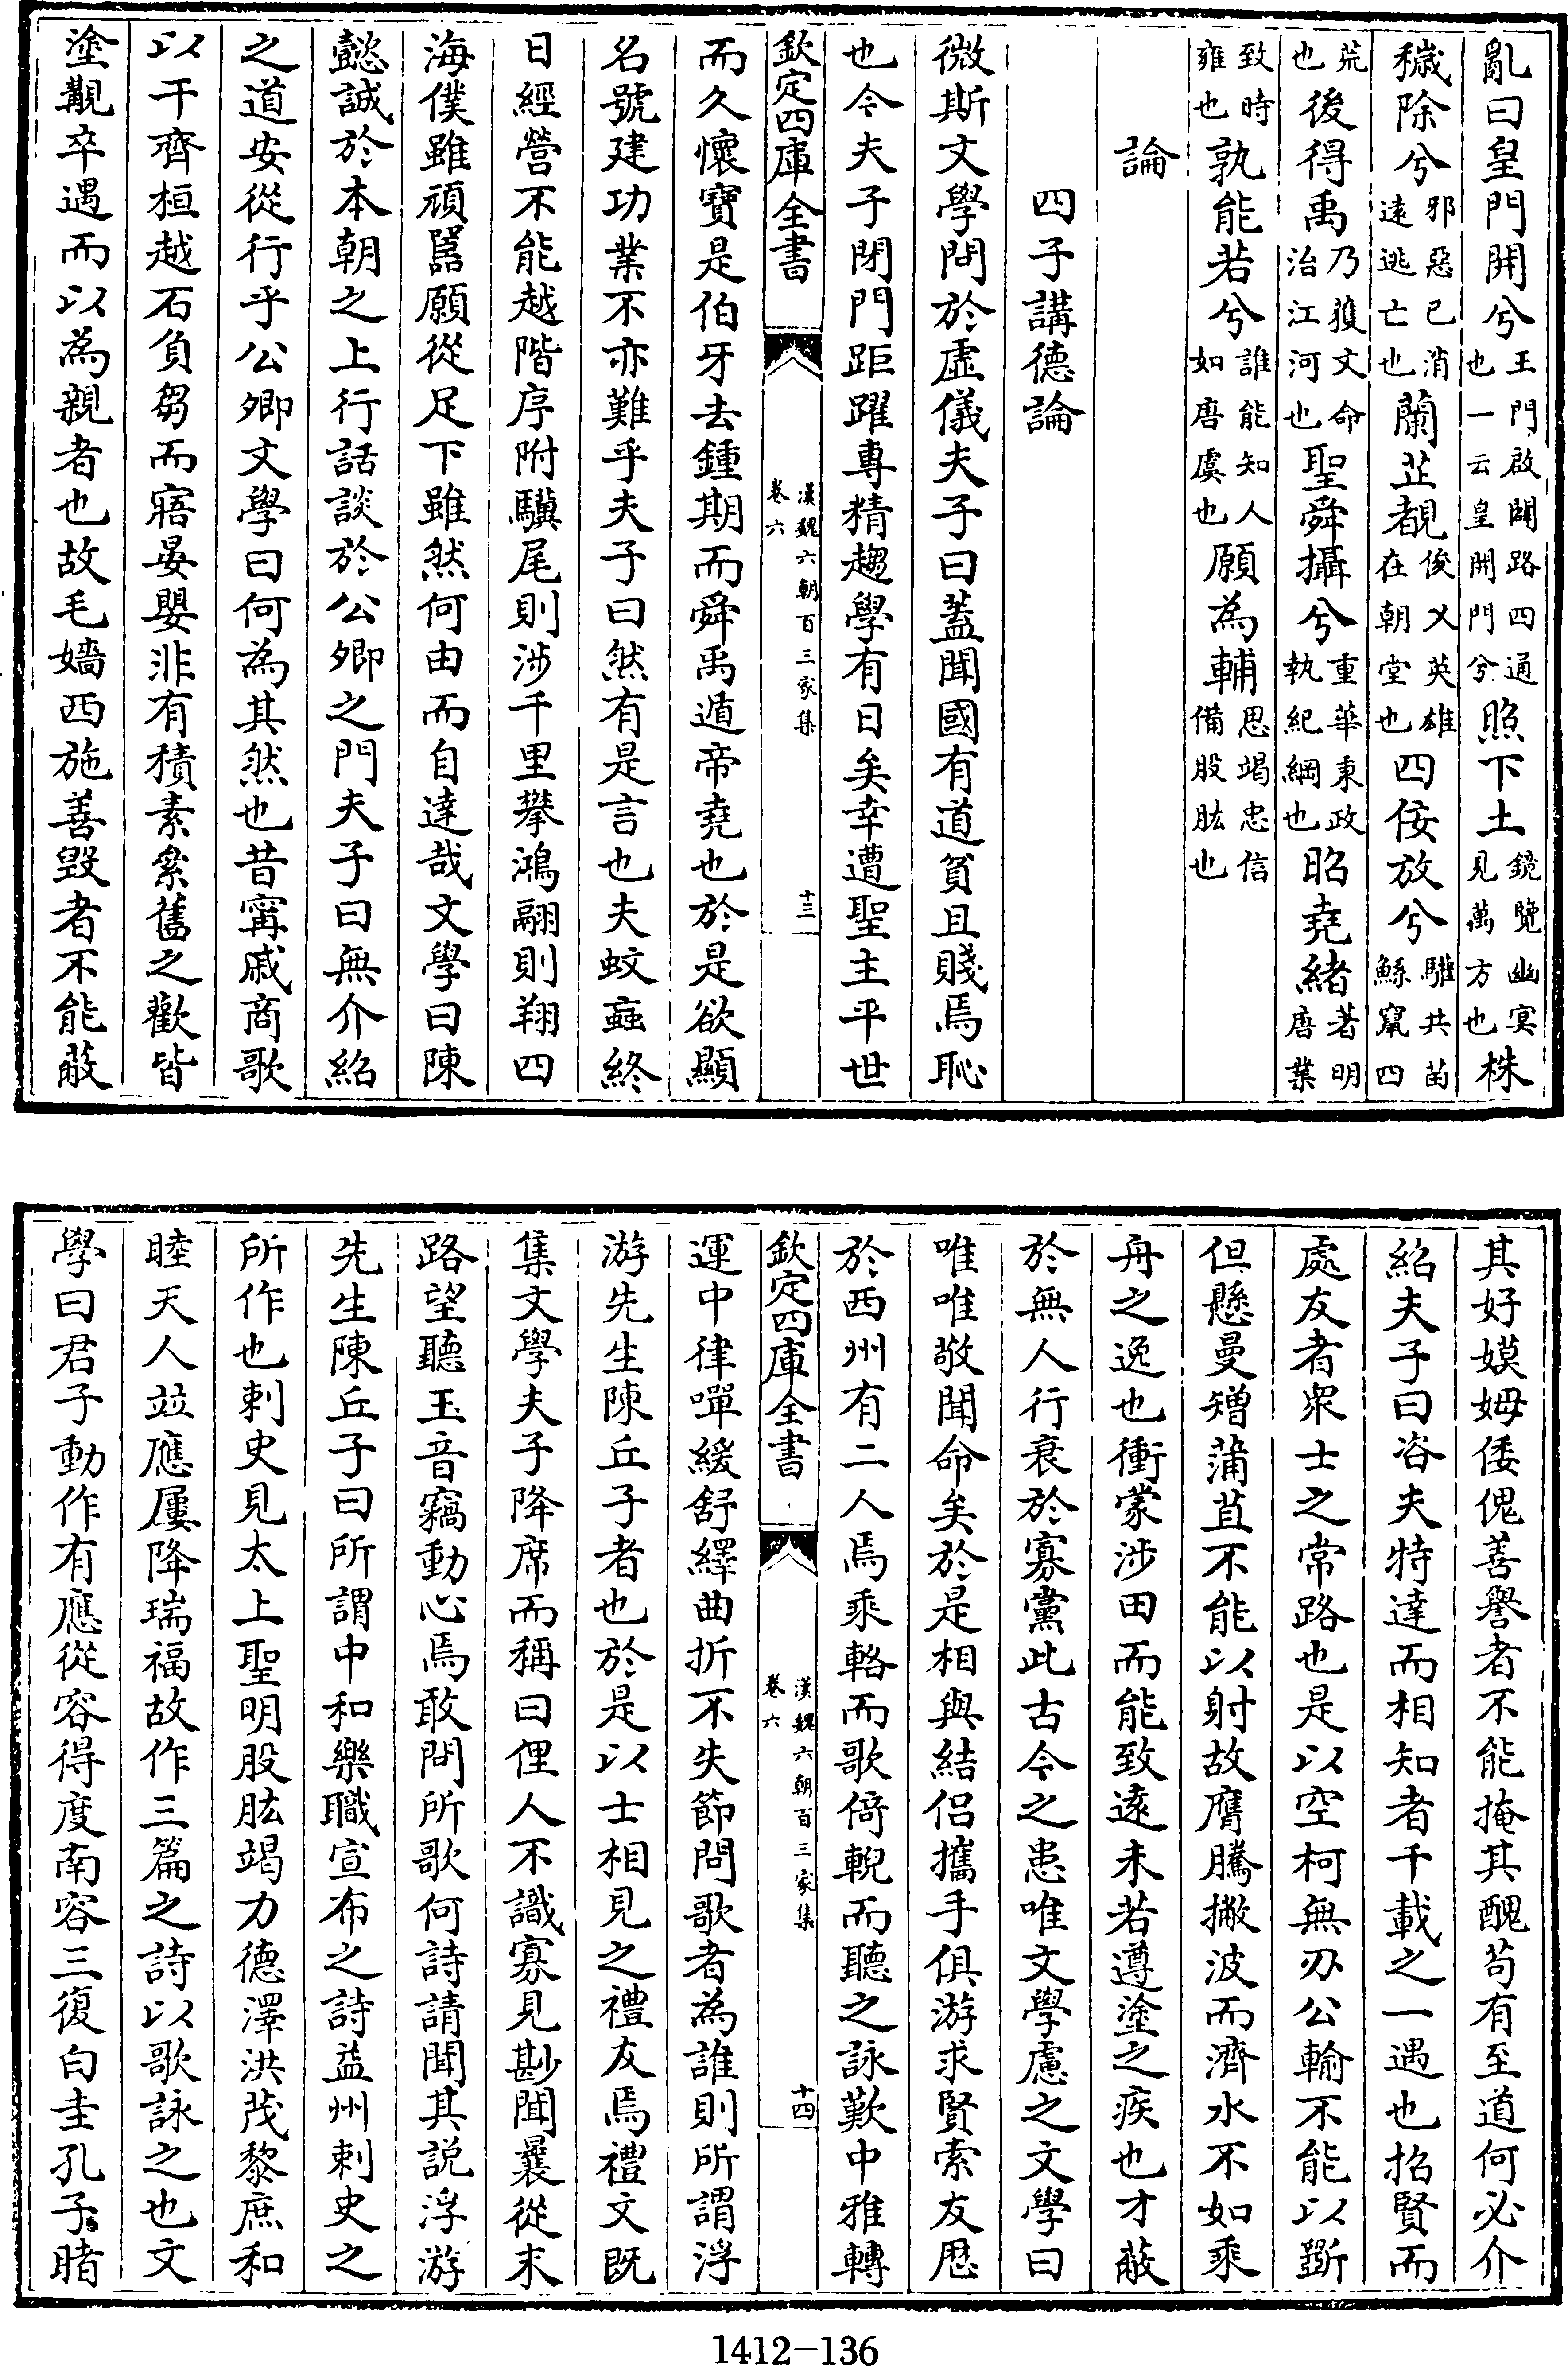 亂曰皇門開兮王門啟闢路四通也一云皇開門兮照下土鏡覽幽冥見萬方也株
穢除兮邪惡已消遠逃亡也蘭芷覩俊乂英雄在朝堂也四佞放兮驩共苗鯀竄四
荒也後得禹乃獲文命治江河也聖舜攝兮重華東政執紀綱也昭堯緒著明唐業
致時雍也孰能若兮誰能知人如唐虞也願為輔思竭忠信備股肱也
論
四子講德論
微斯文學問於虛儀夫子曰蓋聞國有道貧且賤焉恥
也今夫子閉門距躍專精趨學有日矣幸遭聖主平世
欽定四庫全書
漢魏六朝百三家集
卷六
十三
而久懷寶是伯牙去鍾期而舜禹遁帝堯也於是欲顯
名號建功業不亦難乎夫子曰然有是言也夫蚊蝱終
日經營不能越階序附驥尾則涉千里攀鴻翮則翔四
海僕雖頑嚚願從足下雖然何由而自達哉文學曰陳
懿誠於本朝之上行話談於公卿之門夫子曰無介紹
之道安從行乎公卿文學曰何為其然也昔甯戚商歌
以干齊桓越石負芻而寤晏嬰非有積素絫舊之歡皆
塗覯卒遇而以為親者也故毛嬙西施善毀者不能蔽
其好嫫姆倭傀善譽者不能掩其醜苟有至道何必介
紹夫子曰咨夫特達而相知者千載之一遇也招賢而
處友者眾士之常路也是以空柯無刃公輸不能以斲
但懸曼矰蒲苴不能以射故膺騰撇波而濟水不如乘
舟之逸也衝蒙涉田而能致遠未若遵塗之疾也才蔽
於無人行衰於寡黨此古今之患唯文學慮之文學曰
唯唯敬聞命矣於是相與結侶攜手俱游求賢索友歴
於西州有二人焉乘輅而歌倚輗而聽之詠歎中雅轉
欽定四庫全書
漢魏六朝百三家集
卷六
十四
運中律嘽緩舒繹曲折不失節問歌者為誰則所謂浮
游先生陳丘子者也於是以士相見之禮友焉禮文既
集文學夫子降席而稱曰俚人不識寡見尠聞曩從末
路望聽玉音竊動心焉敢問所歌何詩請聞其説浮游
先生陳丘子曰所謂中和樂職宣布之詩益州刺史之
所作也刺史見太上聖明股肱竭力德澤洪茂黎庶和
睦天人竝應屢降瑞福故作三篇之詩以歌詠之也文
學曰君子動作有應從容得度南容三復白圭孔子睹
1412-136